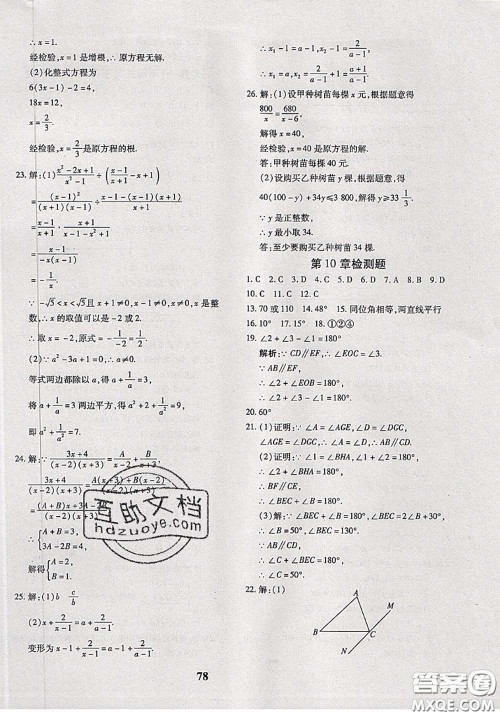 ∴ x=1.
经检验,x=1是增根,∴原方程无解.
(2)化整式方程为
6(3x-1)-2=4,
18x=12,
x=2/3.
经检验,x=2/3是原方程的根.
23.解:(1)(x²-2x+1)/(x³-1)÷((x-1)/(x+1)-x+1)
=(x-1)²/((x+1)(x-1))÷(x-1-(x-1)(x+1))/(x+1)
=(x-1)/(x+1)·(x+1)/(x-1-x²+1)
=(x-1)/(-x(x-1))
=-1/x.
∵-√5<x<√5且x+1≠0,x-1≠0,x≠0,x是整
数,∴x的取值可以是-2或2.
∴取x=-2,原式=-1/(-2)=1/2.
(2)∵a²-3a+1=0.
等式两边都除以a,得a+1/a=3.
将a+1/a=3两边平方,得a²+1/a²+2=9,
即a²+1/a²=7.
24.解:∵(3x+4)/((x-2)(x+3))=A/(x-2)+B/(x+3),
(3x+4)/((x-2)(x+3))=(A(x+3)+B(x-2))/((x-2)(x+3))
=((A+B)x+3A-2B)/((x-2)(x+3)),
∴{A+B=3, 3A-2B=4.
解得{A=2, B=1.
25.解:(1)b c/b
(2)x+2/(x-1)=a+2/(a-1).
变形为x-1+2/(x-1)=a-1+2/(a-1).
∴x₁-1=a-1,x₂-1=2/(a-1).
∴x₁=a,x₂=2/(a-1)+1=(a+1)/(a-1).
26.解:(1)设甲种树苗每棵x元,根据题意得
800/x=680/(x-6).
解得x=40,
经检验,x=40是原方程的解.
答:甲种树苗每棵40元.
(2)设购买乙种树苗y棵,根据题意,得
40(100-y)+34y≤3 800,解得y≥33 1/3.
∵y是正整数,
∴y最小取34.
答:至少要购买乙种树苗34棵.
第10章检测题
1.C 2.C 3.D 4.C 5.D 6.D 7.A 8.B 9.D
10.C 11.C 12.C
13.70或110 14.98 15.同位角相等,两直线平行
16.10° 17.15° 18.①②④
19.∠2+∠3-∠1=180°
解析:∵CD∥EF,∴∠EOC=∠3.
∵AB∥EF,
∴∠2+∠EOF=180°.
∴∠2+∠3-∠1=180°.
20.60°
21.(1)证明:∵∠A=∠AGE,∠D=∠DGC,
∠AGE=∠DGC,
∴∠A=∠D.∴AB∥CD.
(2)证明:∵∠1=∠BHA,∠1+∠2=180°,
∴∠2+∠BHA=180°.
∴CE∥FB.
∴∠BEC+∠B=180°.
(3)解:∵∠BEC=2∠B+30°,
∠BEC+∠B=180°,
∴∠B=50°,∠BEC=130°.
∵AB∥CD,
∴∠BEC+∠C=180°.
∴∠C=50°.
22.解:(1)
A
M
B
C
N
78
互助文档
hdzuoye.com
答案圈
MXQE.COM